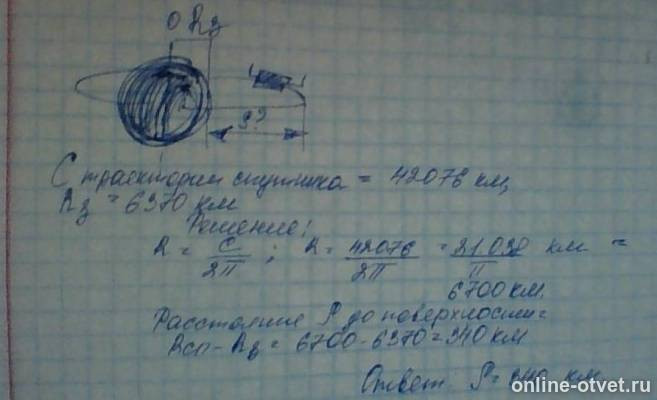 O Rз
S?
C траектории спутника = 42076 км,
Rз = 6370 км
Решение:
R = C/2П ; R = 42076/2П = 21038/П км =
6700 км.
Расстояние S до поверхности =
Rсп - Rз = 6700 - 6370 = 340 км
Ответ: S = 340 км.
online-otvet.ru